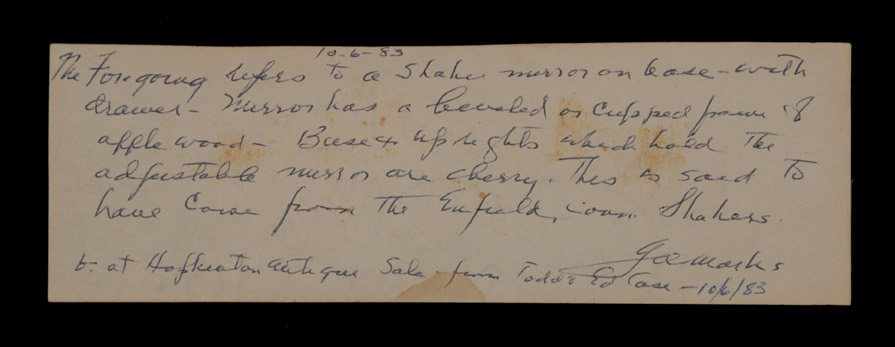 10-6-83
The Foregoing refers to a Shaker mirror on base - with
drawer - Mirror has a beveled or cupped frame of
apple wood - Base & uprights which hold the
adjustable mirror are cherry. This is said to
have come from the Enfield, Conn. Shakers.
Gus Marks
b. at Hopkinton Antique Sale from Todd & Case - 10/6/83